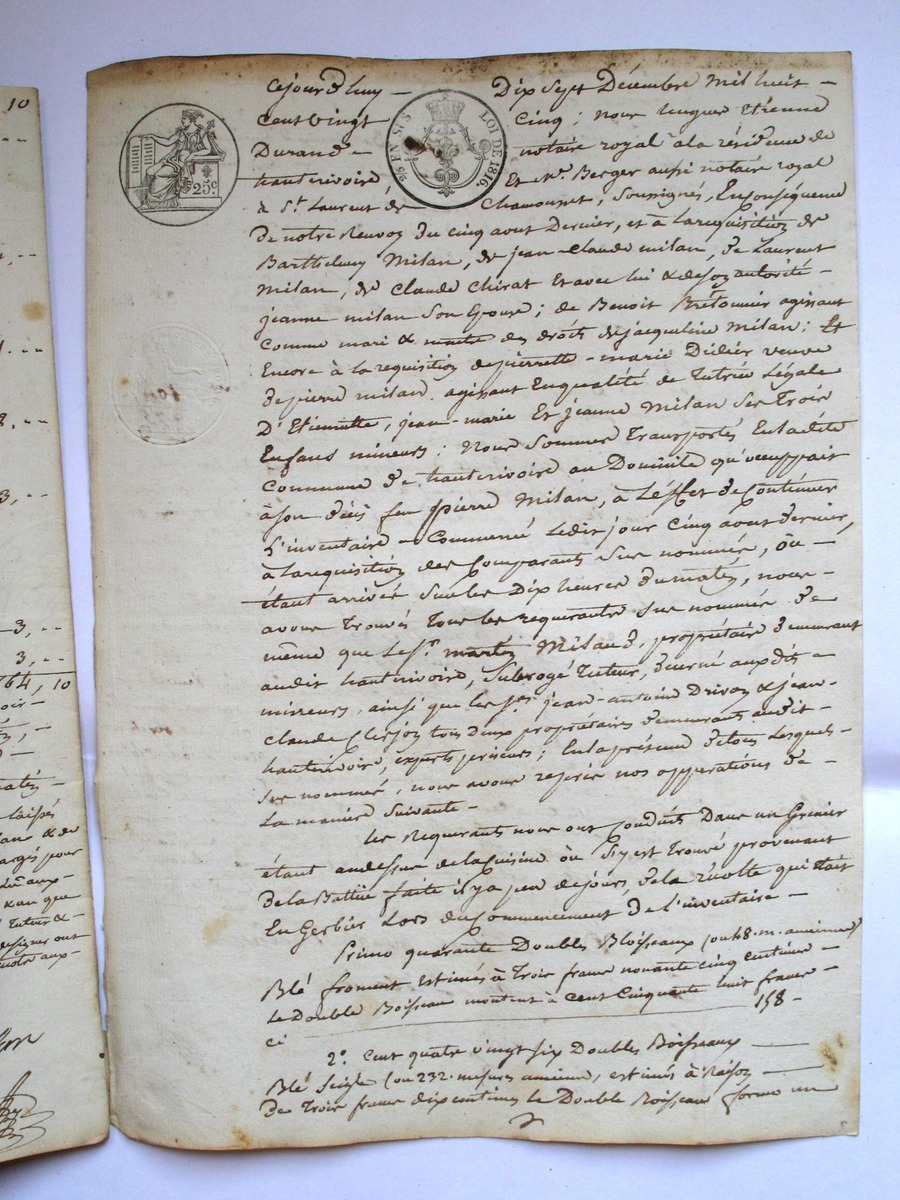 10
64, 10
cejourd'huy — Dix Sept Décembre Mil huit —
Cent Vingt Cinq ; Nous Etienne
Durand — notaire royal à la résidence de
hauterivoire Et Mr. Berger aussi notaire royal
à St. Laurent de Chamousset, Soussignés, En Conséquence
de notre Renvoy du cinq aout Dernier, et à la réquisition de
Barthelmy Milan, de jean-Claude milan, de Laurent
Milan, de Claude Chirat Et avec lui & de son autorité —
jeanne milan Son Epouse ; de Benoit Bretonnier agissant
comme mari & maitre des droits de jacqueline Milan ; Et
Encore à la requisition de pierrette-marie Didier veuve
de pierre milan, agissant En qualité de Tutrice Légale
D'Etiennette, jean-marie Et jeanne Milan Ses Trois
Enfans mineurs ; Nous Sommes Transportés En ladite
Commune de hauterivoire au Domicile qu'occuppait
à son décès feu pierre Milan, à L'éffet de Continuer
L'inventaire — Commencé Ledit jour Cinq aout dernier,
à la requisition des Comparants Sus nommés, ou —
étant arrivés Sur les Dix heures du matin, nous —
avons Trouvés Tous les requerants Sus nommés de
même que le Sr. martin Miland, propriétaire demeurant
audit hauterivoire, Subrogé Tuteur, décerné aux dits —
mineurs, ainsi que les Srs. jean-antoine Drivon & jean-
claude Clerjon tous deux propriétaires demeurants audit —
hauterivoire, experts priseurs ; En la présence de tous lesquels —
Sus nommés, nous avons repris nos opperations de —
La manière Suivante —
Les Requerants nous ont Conduits Dans un Grenier
étant au dessus de la cuisine où S'y est Trouvé provenant
de la Battue faite il y a peu de jours, de la récolte qui était
En Gerbier Lors du Commencement de L'inventaire —
Primo quarante Doubles Boisseaux (ou 48. m. anciennes)
Blé froment estimés à Trois francs nonante cinq centimes
le Double Boisseau montent à Cent Cinquante huit francs —
ci 158 —
2o. Cent quatre vingt Six Doubles Boisseaux —
Blé Seigle (ou 232. mesures anciennes, estimés à Raison —
de Trois francs dix centimes le Double Boisseau forme un
25 c.
95 EN SUS LOI DE 1816.